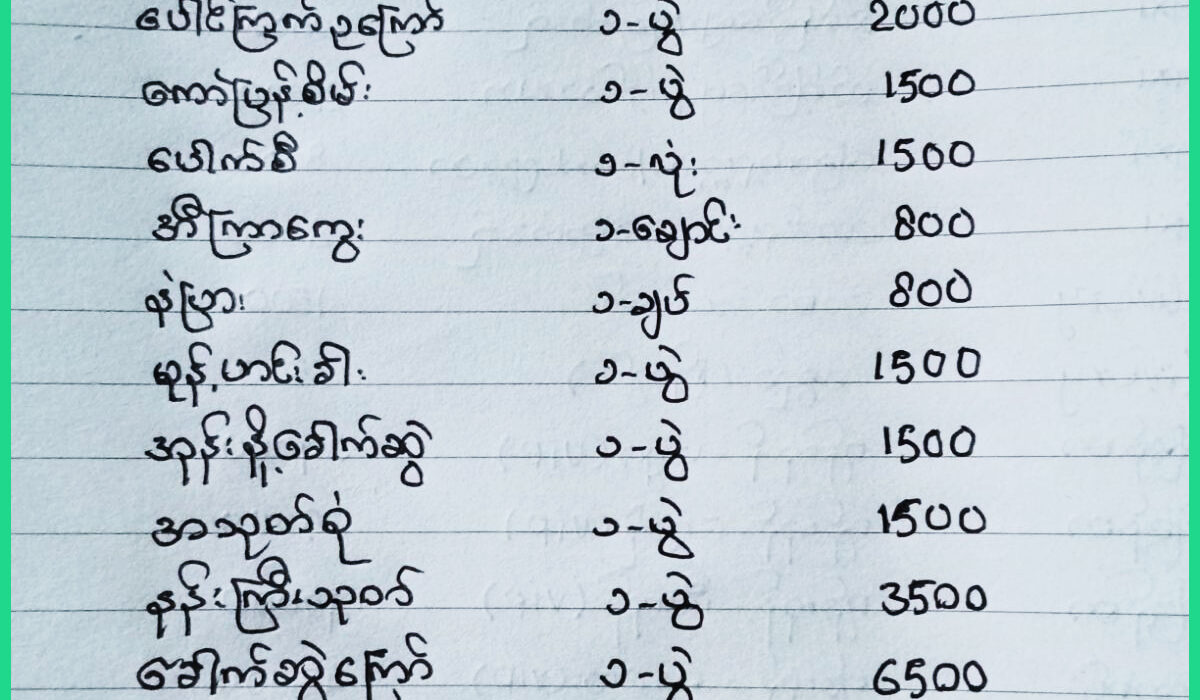 ပေါင်ကြွက်ဥကြော် ၁-ပွဲ 2000
ကော်ပြန့်စိမ်း ၁-ပွဲ 1500
ပေါက်စီ ၁-လုံး 1500
အီကြာကွေး ၁-ချောင်း 800
နံပြား ၁-ချပ် 800
မုန့်ဟင်းခါး ၁-ပွဲ 1500
အုန်းနို့ခေါက်ဆွဲ ၁-ပွဲ 1500
အသုတ်စုံ ၁-ပွဲ 1500
နန်းကြီးသုတ် ၁-ပွဲ 3500
ခေါက်ဆွဲကြော် ၁-ပွဲ 6500